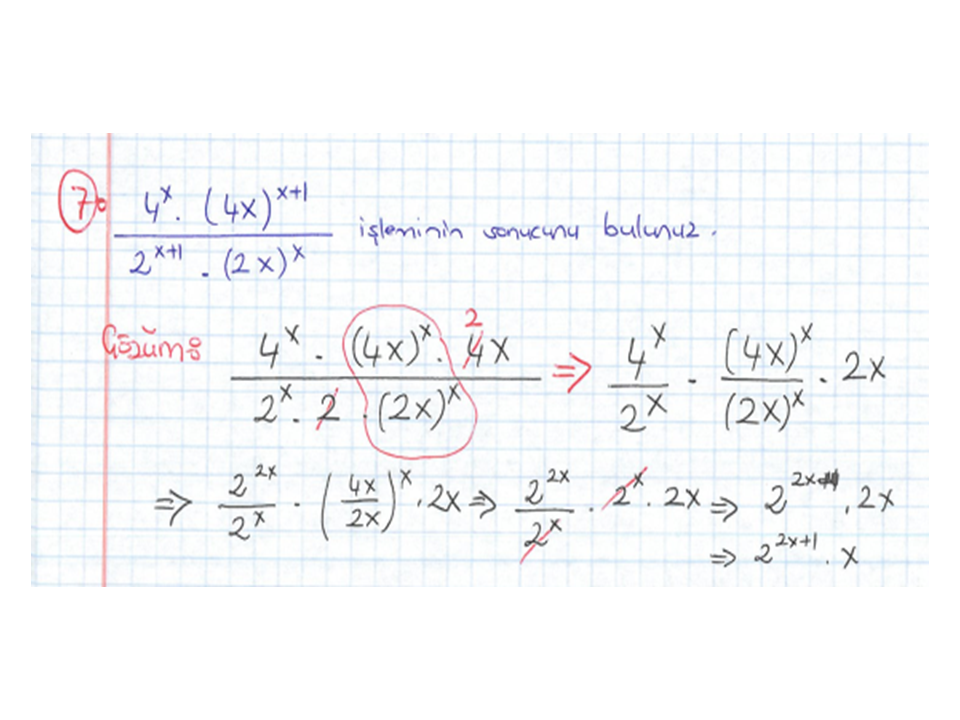 7. 4^x . (4x)^(x+1) / 2^(x+1) . (2x)^x işleminin sonucunu bulunuz.
Çözüm: 4^x . (4x)^x . 4x 2 / 2^x . 2 . (2x)^x ⇒ 4^x / 2^x . (4x)^x / (2x)^x . 2x
⇒ 2^(2x) / 2^x . (4x / 2x)^x . 2x ⇒ 2^(2x) / 2^x . 2^x . 2x ⇒ 2^(2x) . 2x
⇒ 2^(2x+1) . x